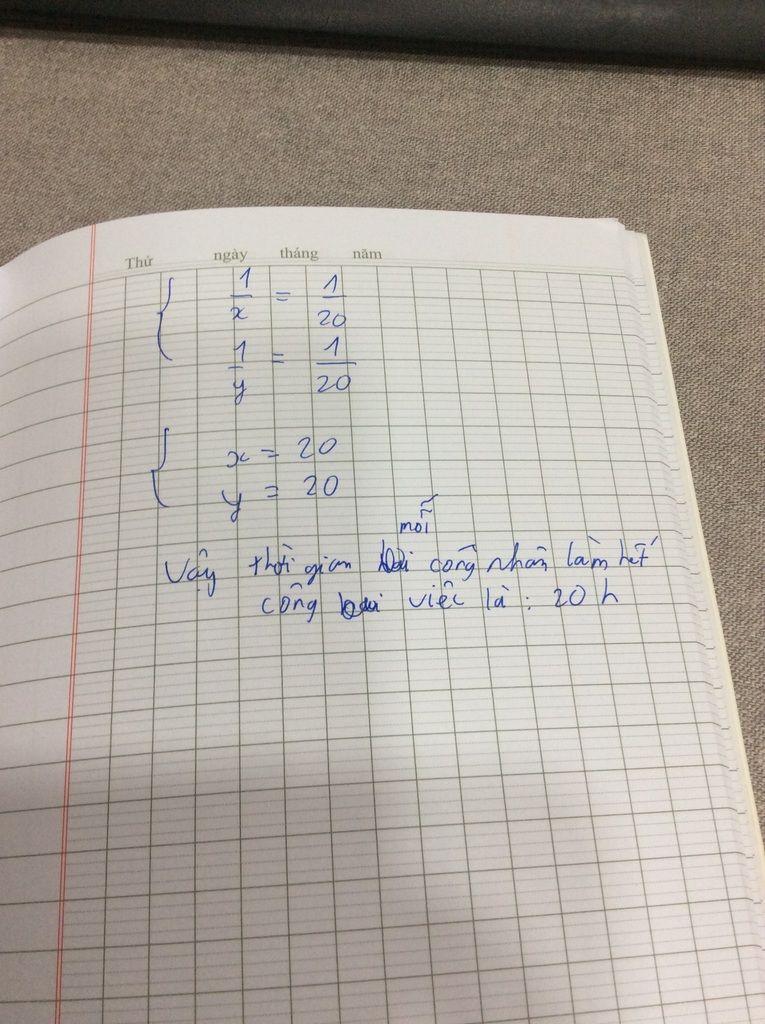 Thứ ngày tháng năm
1/x = 1/20
1/y = 1/20
x = 20
y = 20
mỗi
Vậy thời gian công nhân làm hết
công việc là : 20 h